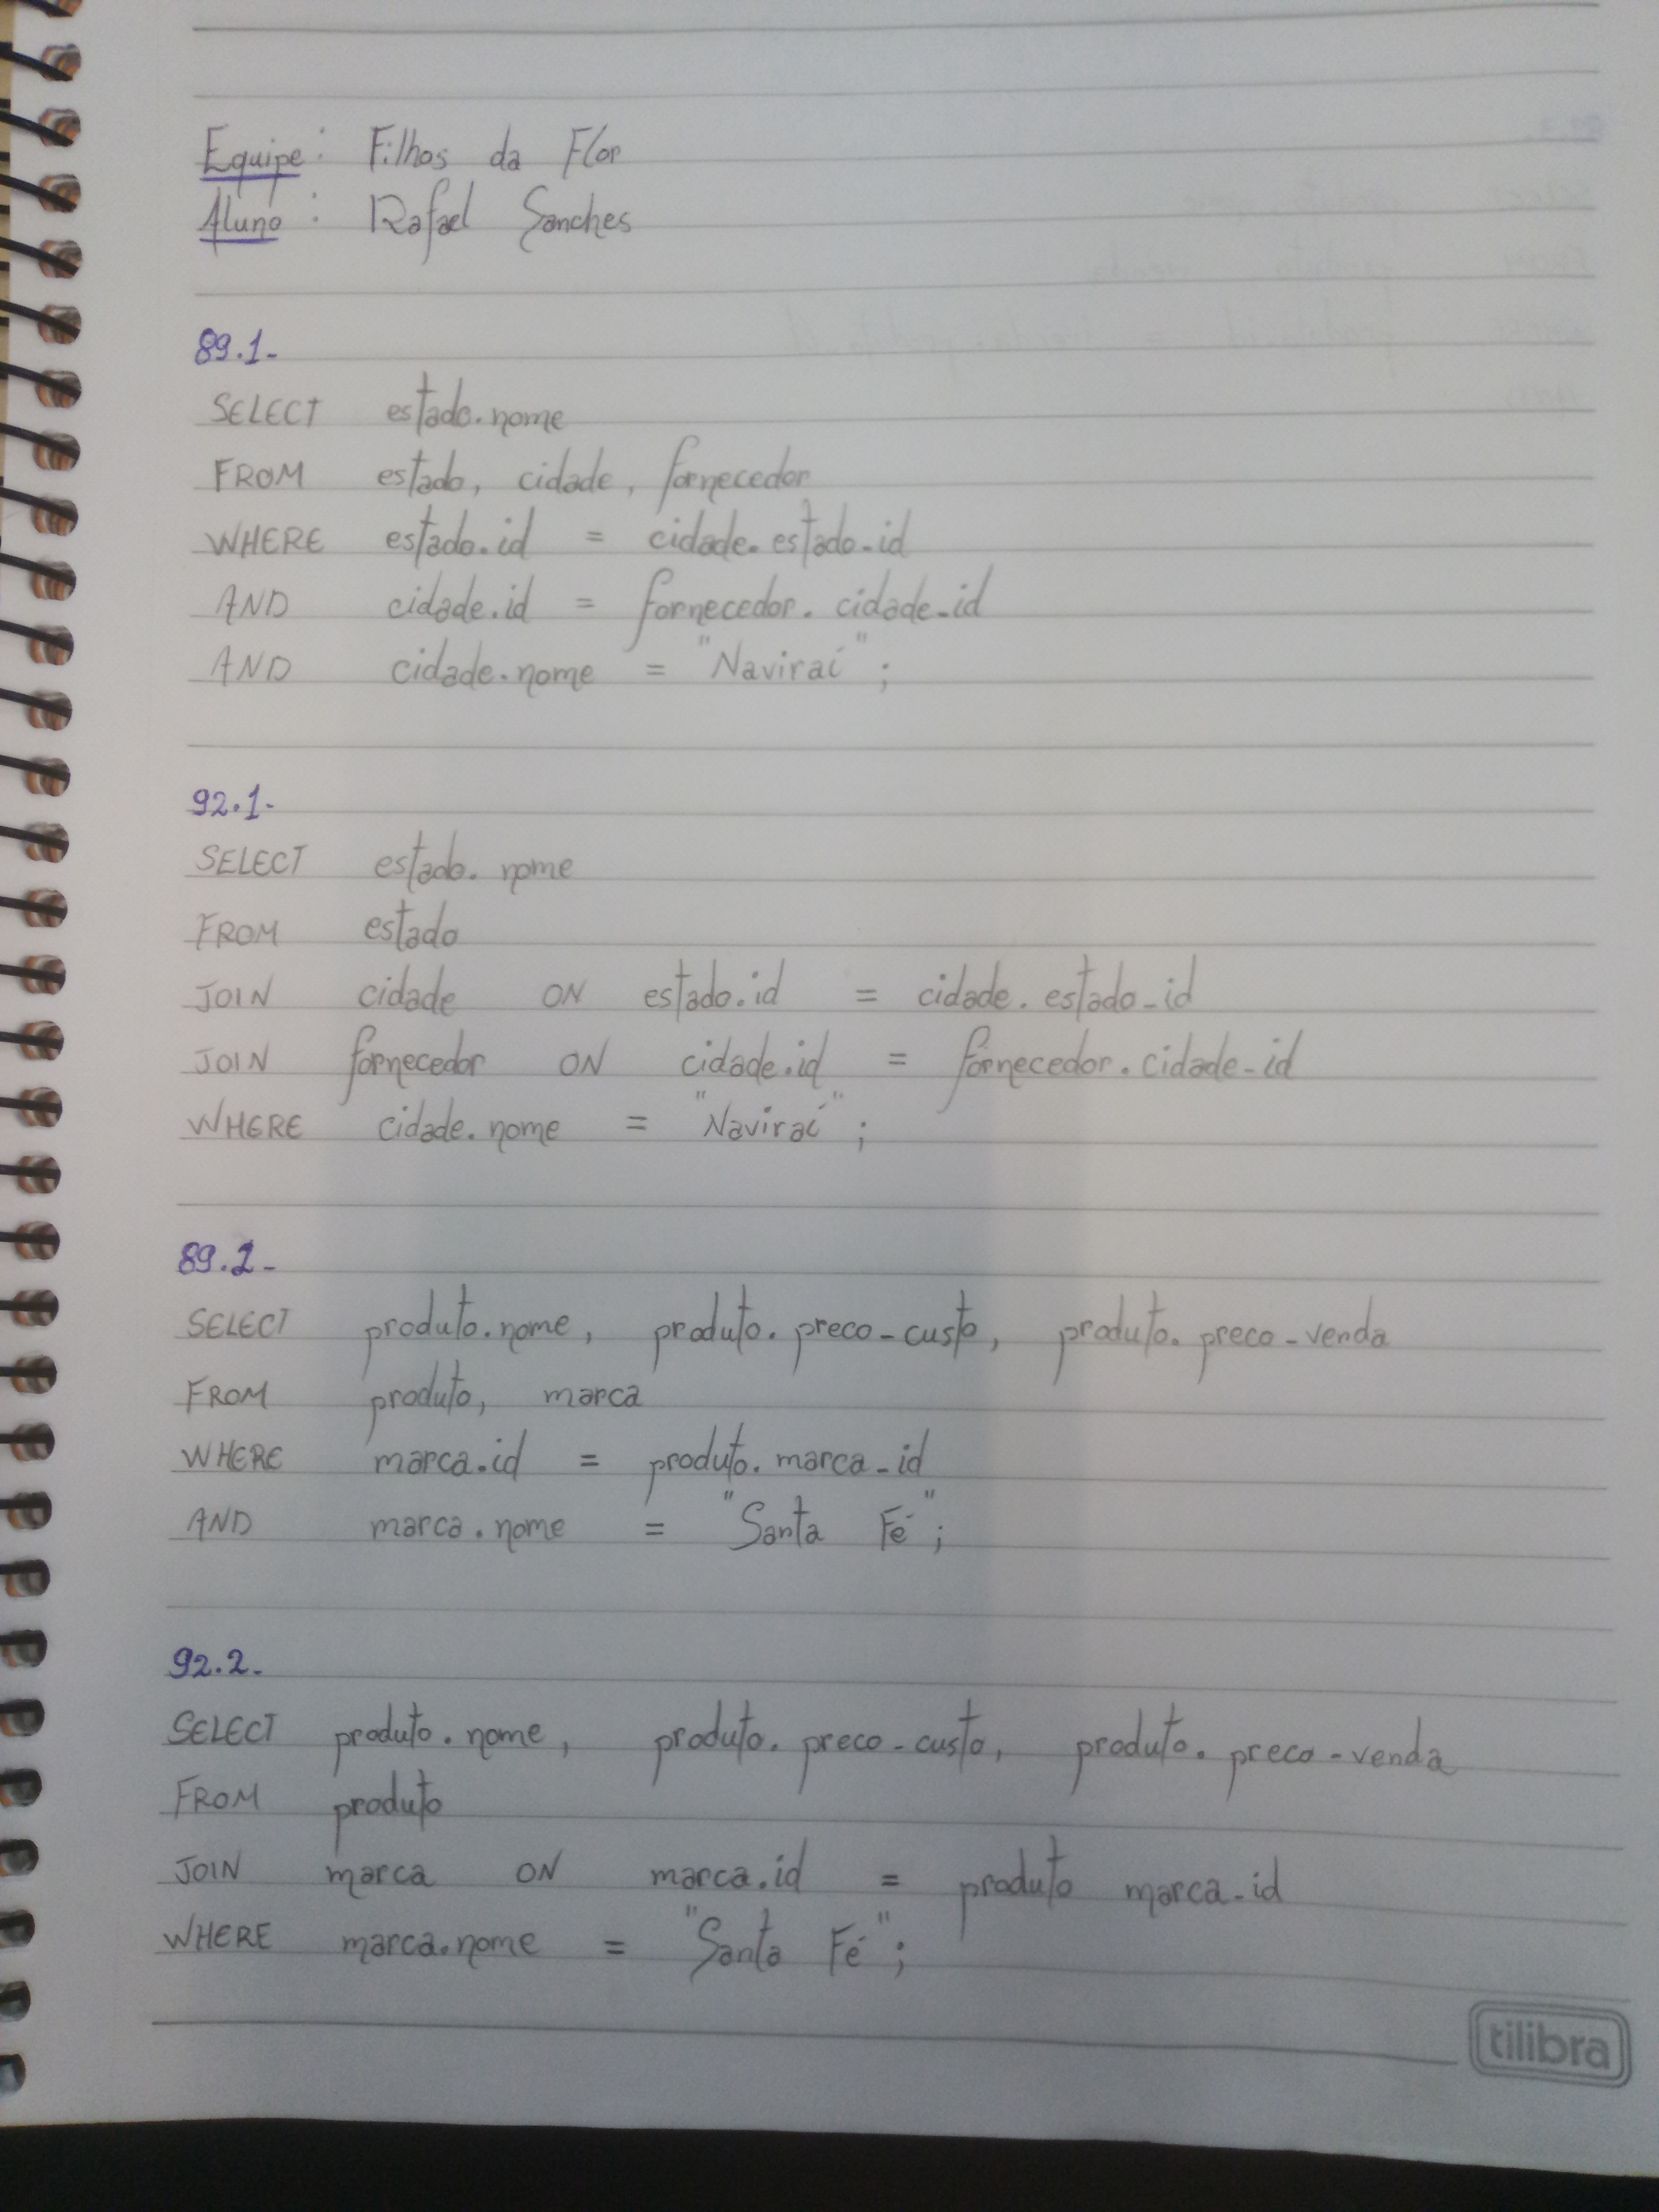 Equipe: Filhos da Flor
Aluno: Rafael Sanches
89.1-
SELECT estado.nome
FROM estado, cidade, fornecedor
WHERE estado.id = cidade.estado_id
AND cidade.id = fornecedor.cidade_id
AND cidade.nome = "Naviraí";
92.1-
SELECT estado.nome
FROM estado
JOIN cidade ON estado.id = cidade.estado_id
JOIN fornecedor ON cidade.id = fornecedor.cidade_id
WHERE cidade.nome = "Naviraí";
89.2-
SELECT produto.nome, produto.preco_custo, produto.preco_venda
FROM produto, marca
WHERE marca.id = produto.marca_id
AND marca.nome = "Santa Fé";
92.2-
SELECT produto.nome, produto.preco_custo, produto.preco_venda
FROM produto
JOIN marca ON marca.id = produto marca_id
WHERE marca.nome = "Santa Fé";
tilibra